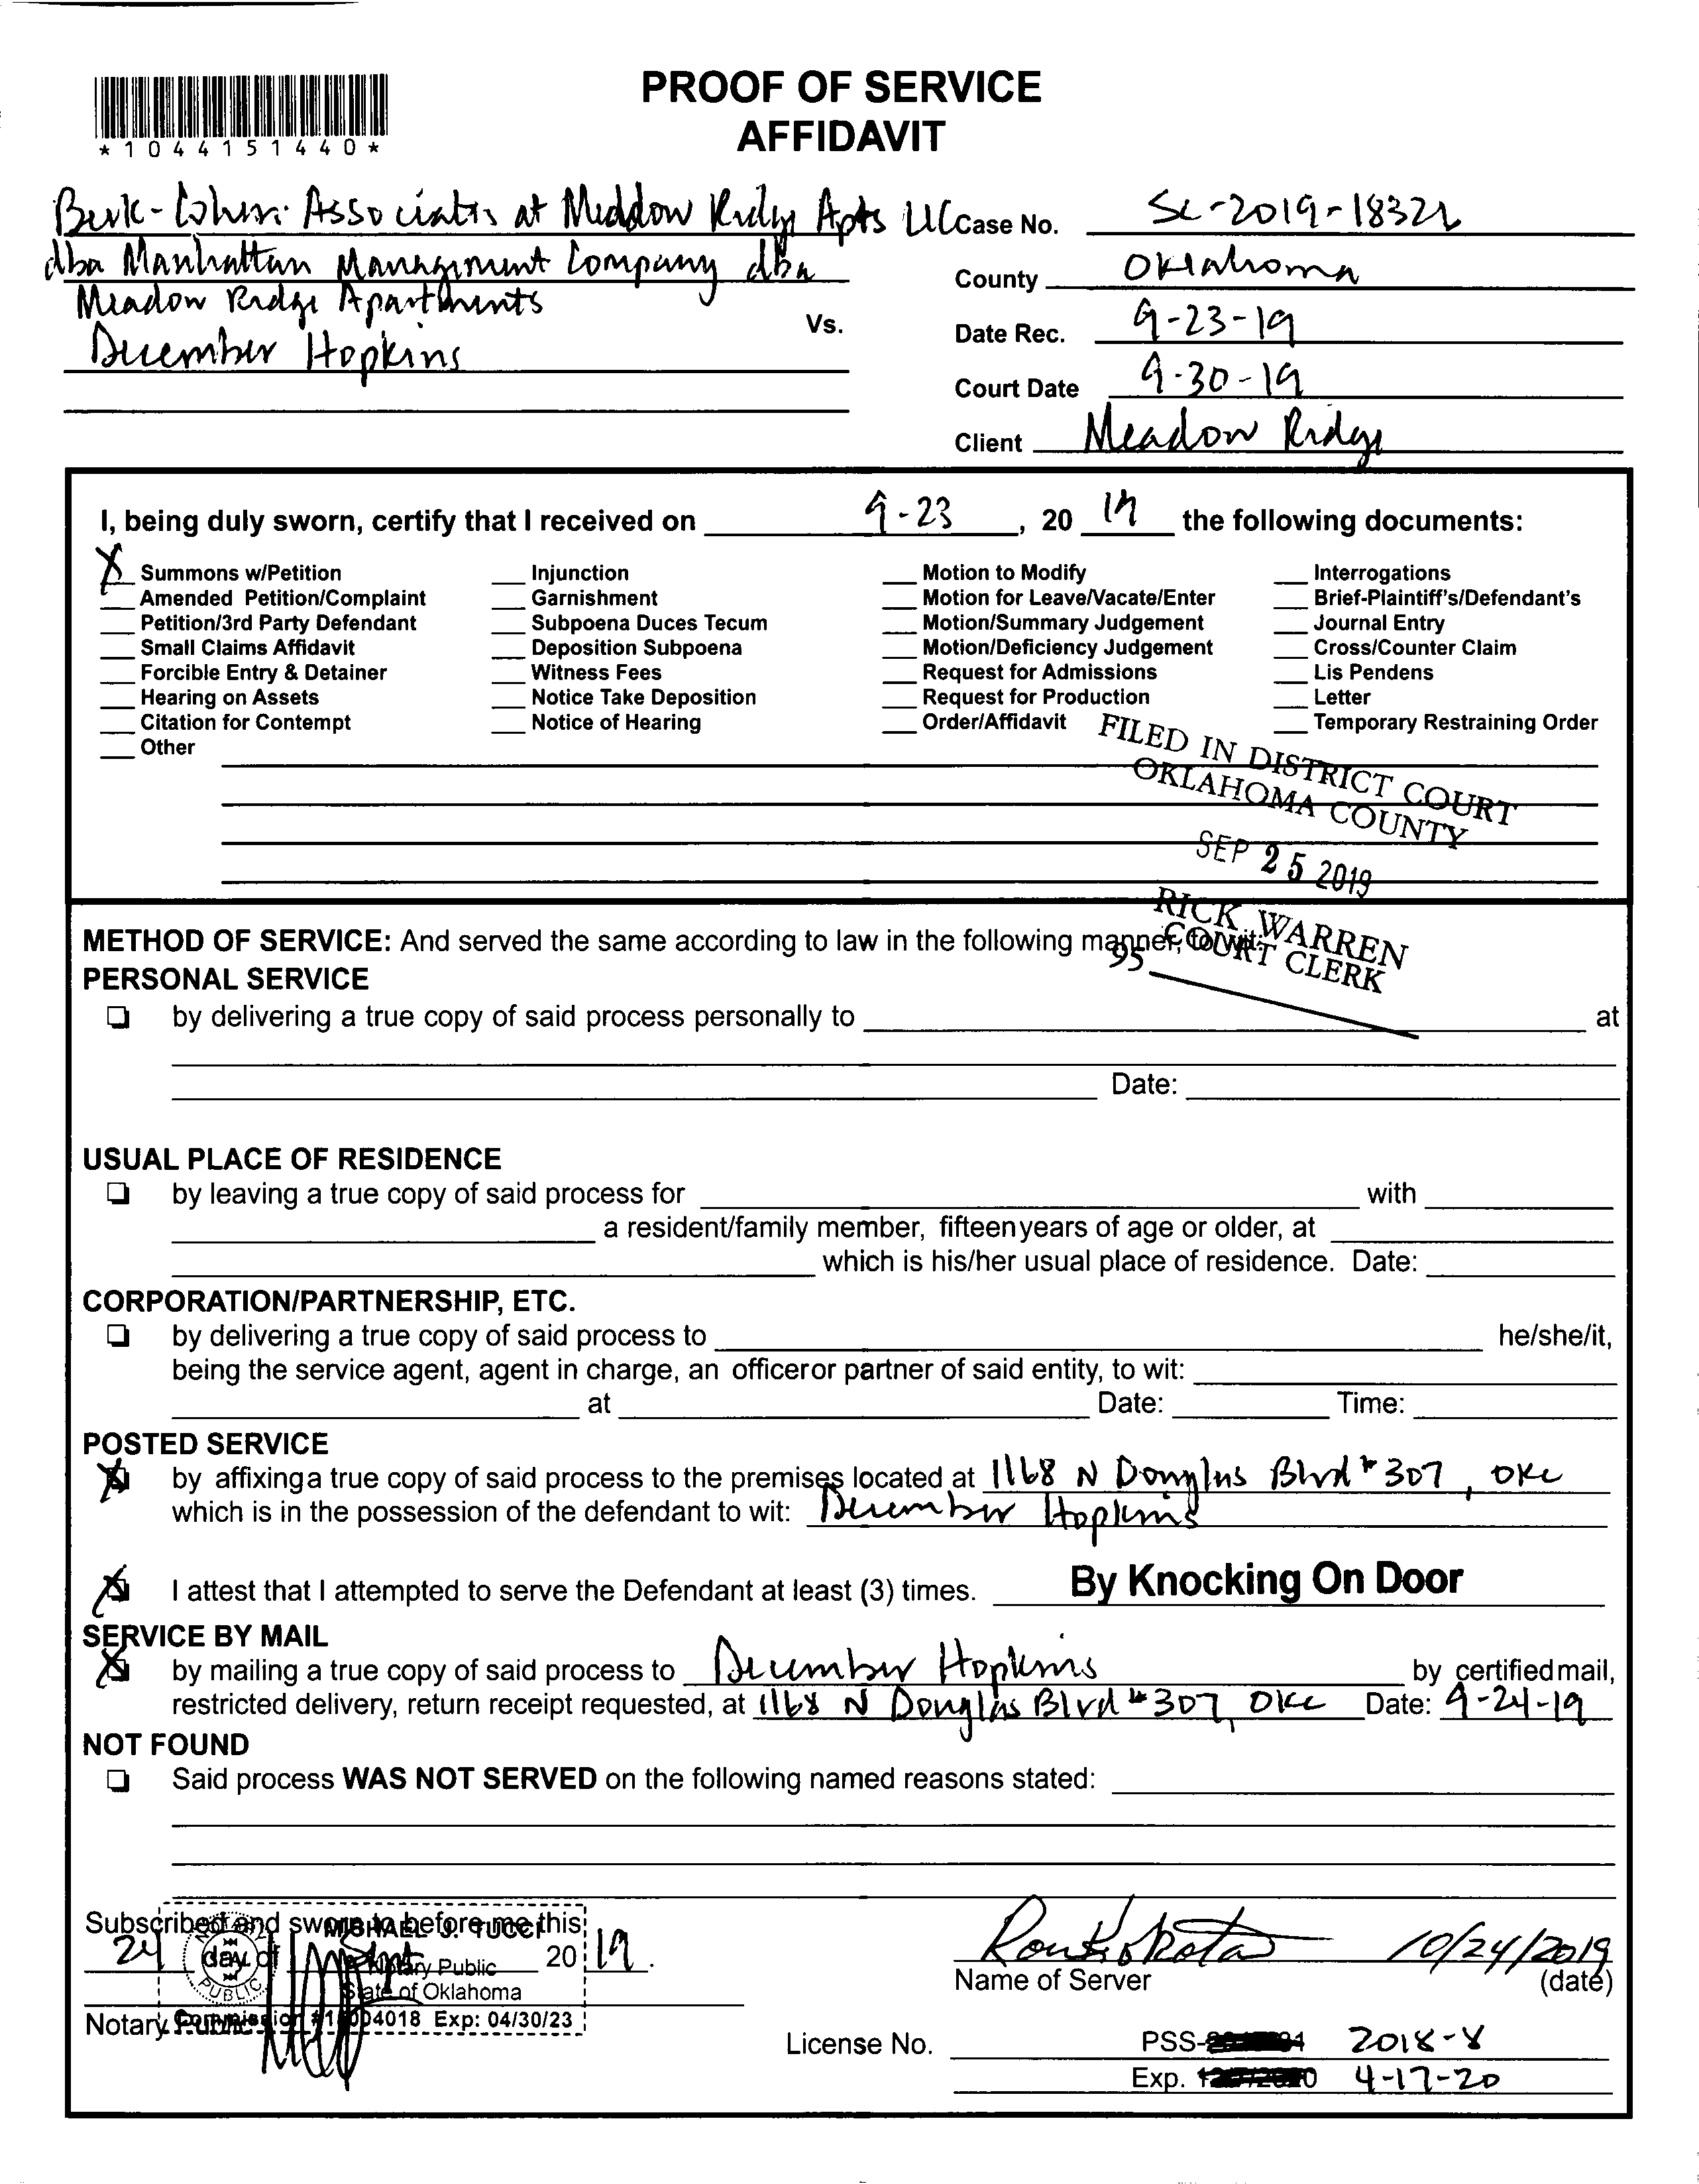 PROOF OF SERVICE
AFFIDAVIT
*1044151440*
Berk-Cohen Associates at Meddow Ridge Apts LLC Case No. SC-2019-18322
dba Manhattan Management Company dba
Meadow Ridge Apartments
County Oklahoma
Vs.
Date Rec. 9-23-19
December Hopkins
Court Date 9-30-19
Client Meadow Ridge
I, being duly sworn, certify that I received on 9-23, 20 19 the following documents:
X Summons w/Petition
Amended Petition/Complaint
Petition/3rd Party Defendant
Small Claims Affidavit
Forcible Entry & Detainer
Hearing on Assets
Citation for Contempt
Other
Injunction
Garnishment
Subpoena Duces Tecum
Deposition Subpoena
Witness Fees
Notice Take Deposition
Notice of Hearing
Motion to Modify
Motion for Leave/Vacate/Enter
Motion/Summary Judgement
Motion/Deficiency Judgement
Request for Admissions
Request for Production
Order/Affidavit
Interrogations
Brief-Plaintiff's/Defendant's
Journal Entry
Cross/Counter Claim
Lis Pendens
Letter
Temporary Restraining Order
FILED IN DISTRICT COURT
OKLAHOMA COUNTY
SEP 25 2019
RICK WARREN
COURT CLERK
95
METHOD OF SERVICE: And served the same according to law in the following manner, to wit:
PERSONAL SERVICE
by delivering a true copy of said process personally to at
Date:
USUAL PLACE OF RESIDENCE
by leaving a true copy of said process for with
a resident/family member, fifteen years of age or older, at
which is his/her usual place of residence. Date:
CORPORATION/PARTNERSHIP, ETC.
by delivering a true copy of said process to he/she/it,
being the service agent, agent in charge, an officer or partner of said entity, to wit:
at Date: Time:
POSTED SERVICE
X by affixing a true copy of said process to the premises located at 1168 N Douglas Blvd # 307, OKC
which is in the possession of the defendant to wit: December Hopkins
X I attest that I attempted to serve the Defendant at least (3) times. By Knocking On Door
SERVICE BY MAIL
X by mailing a true copy of said process to December Hopkins by certified mail,
restricted delivery, return receipt requested, at 1168 N Douglas Blvd # 307, OKC Date: 9-24-19
NOT FOUND
Said process WAS NOT SERVED on the following named reasons stated:
Subscribed and sworn to before me this
24 day of Sept 20 19.
MICHAEL J. TUCCI
Notary Public
State of Oklahoma
Commission #1 004018 Exp: 04/30/23
NOTARY PUBLIC
Notary Public
10/24/2019
Name of Server (date)
License No. PSS- 2018-8
Exp. 4-17-20